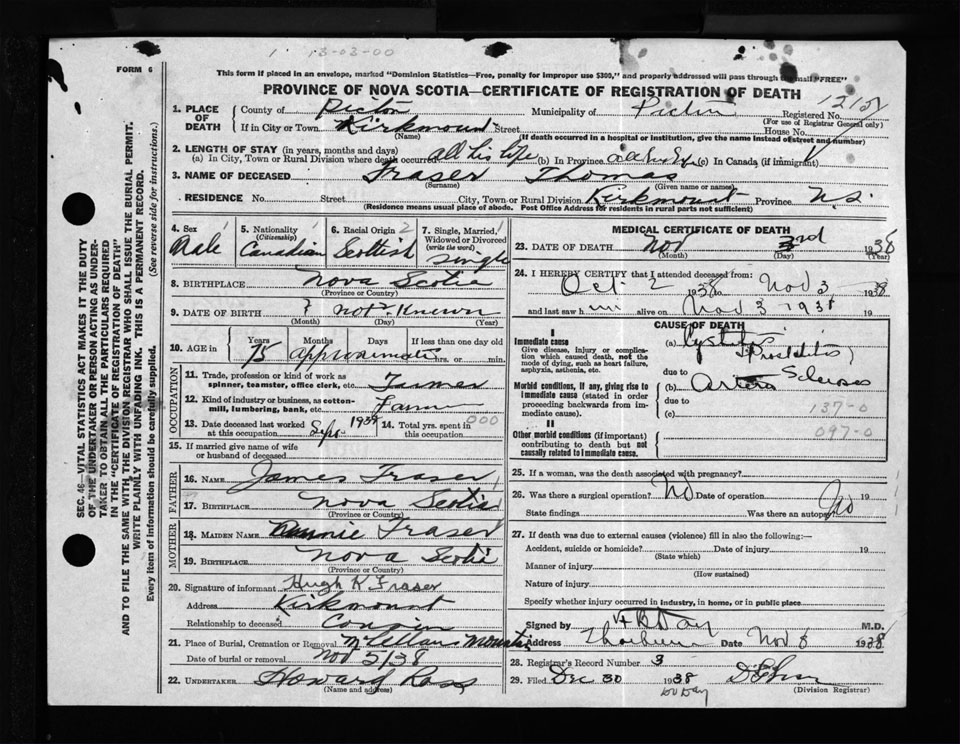 1 13-03-00
FORM 6
This form if placed in an envelope, marked "Dominion Statistics—Free, penalty for improper use $300," and properly addressed will pass through the mail "FREE"
PROVINCE OF NOVA SCOTIA—CERTIFICATE OF REGISTRATION OF DEATH
SEC. 46—VITAL STATISTICS ACT MAKES IT THE DUTY
OF THE UNDERTAKER OR PERSON ACTING AS UNDER-
TAKER TO OBTAIN ALL THE PARTICULARS REQUIRED
IN THE "CERTIFICATE OF REGISTRATION OF DEATH"
AND TO FILE THE SAME WITH THE DIVISION REGISTRAR WHO SHALL ISSUE THE BURIAL PERMIT.
WRITE PLAINLY WITH UNFADING INK. THIS IS A PERMANENT RECORD.
Every item of information should be carefully supplied. (See reverse side for instructions.)
1. PLACE OF DEATH County of Pictou Municipality of Pictou Registered No.
(For use of Registrar General only)
If in City or Town Kirkmount Street House No.
(Name) (If death occurred in a hospital or institution, give the name instead of street and number)
2. LENGTH OF STAY (in years, months and days)
(a) In City, Town or Rural Division where death occurred all his life (b) In Province all his life (c) In Canada (if immigrant)
3. NAME OF DECEASED Fraser Thomas
(Surname) (Given name or names)
RESIDENCE No. Street City, Town or Rural Division Kirkmount Province N.S.
(Residence means usual place of abode. Post Office Address for residents in rural parts not sufficient)
4. Sex Male
5. Nationality (Citizenship) Canadian
6. Racial Origin Scottish
7. Single, Married, Widowed or Divorced (write the word) Single
8. BIRTHPLACE Nova Scotia
(Province or Country)
9. DATE OF BIRTH ? not Known
(Month) (Day) (Year)
10. AGE in Years Months Days If less than one day old
75 approximate hrs. or min.
OCCUPATION
11. Trade, profession or kind of work as spinner, teamster, office clerk, etc. Farmer
12. Kind of industry or business, as cotton-mill, lumbering, bank, etc. Farm
13. Date deceased last worked at this occupation Sept. 1938
14. Total yrs. spent in this occupation 000
15. If married give name of wife or husband of deceased
FATHER
16. NAME James Fraser
17. BIRTHPLACE Nova Scotia
(Province or Country)
MOTHER
18. MAIDEN NAME Annie Fraser
19. BIRTHPLACE Nova Scotia
(Province or Country)
20. Signature of informant Hugh K Fraser
Address Kirkmount
Relationship to deceased Cousin
21. Place of Burial, Cremation or Removal McLellans Mountain
Date of burial or removal Nov 5/38
22. UNDERTAKER Howard Ross
(Name and address)
MEDICAL CERTIFICATE OF DEATH
23. DATE OF DEATH Nov 3rd 1938
(Month) (Day) (Year)
24. I HEREBY CERTIFY that I attended deceased from:
Oct. 2 1938 to Nov 3 1938
and last saw him alive on Nov 3 1938
CAUSE OF DEATH
I
Immediate cause
Give disease, injury or complication which caused death, not the mode of dying, such as heart failure, asphyxia, asthenia, etc.
(a) Cystitis, Prostatitis,
due to
Morbid conditions, if any, giving rise to immediate cause (stated in order proceeding backwards from immediate cause).
(b) Arterio Sclerosis
due to
(c) 137-0
II
097-0
Other morbid conditions (if important) contributing to death but not causally related to immediate cause.
25. If a woman, was the death associated with pregnancy?
26. Was there a surgical operation? No Date of operation 19
State findings Was there an autopsy? No
27. If death was due to external causes (violence) fill in also the following:—
Accident, suicide or homicide? Date of injury 19
(State which)
Manner of injury
(How sustained)
Nature of injury
Specify whether injury occurred in industry, in home, or in public place
Signed by Day M.D.
Address Thorburn Date Nov 8 1938
28. Registrar's Record Number 3
29. Filed Dec 30 1938
(Division Registrar)